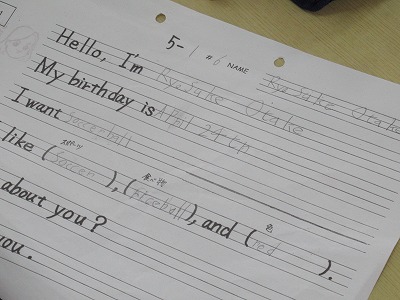 5-1 #6 NAME Ryosuke Otake
Hello, I'm Ryosuke Otake
My birthday is April 24 th
I want Soccerball
like ( スポーツ soccer ), ( 食べ物 riceball ), and ( 色 red ).
about you?
ou.